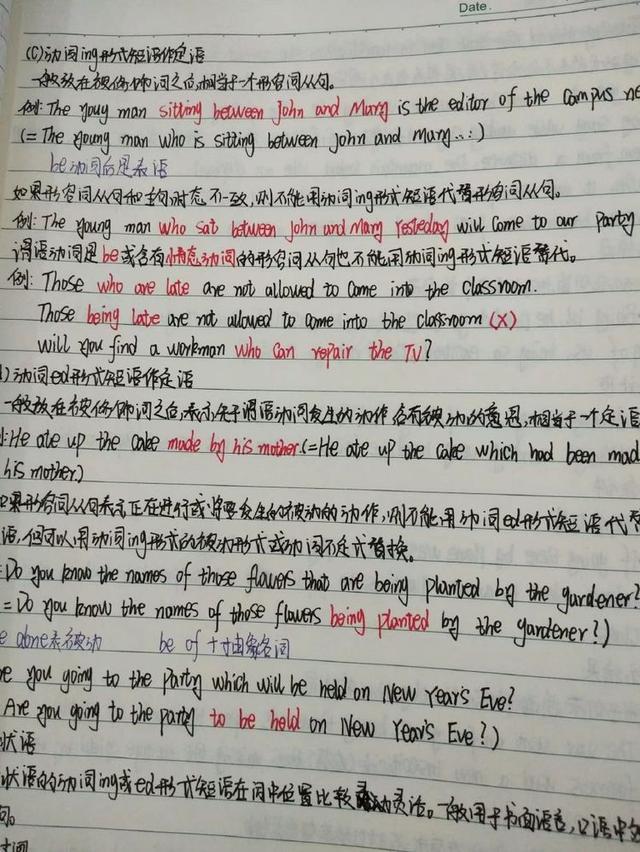 Date.
(C)动词ing形式短语作定语
一般放在被修饰词之后,相当于一个形容词从句。
例: The youg man sitting between John and Mary is the editor of the campus ne
(= The young man who is sitting between John and mary...)
be动词后是表语
如果形容词从句和主句时态不一致,则不能用动词ing形式短语代替形容词从句。
例: The young man who sat between John and Mary Yesteday will come to our party
谓语动词是be或含有情态动词的形容词从句也不能用动词ing形式短语替代。
例: Those who are late are not allowed to come into the classroom.
Those being late are not allowed to come into the classroom (X)
will you find a workman who can repair the TV?
) 动词ed形式短语作定语
一般放在被修饰词之后,表示先于谓语动词发生的动作,含有被动的意思,相当于一个定语
: He ate up the cake made by his mother.(=He ate up the cake which had been mad
his mother.)
果形容词从句表示正在进行或将要发生的被动的动作,则不能用动词ed形式短语代替
语,但可以用动词ing形式的被动形式或动词不定式替换。
: Do you know the names of those flowers that are being planted by the gardener?
= Do you know the names of those flowers being planted by the gardener?)
e done表被动 be of +抽象名词
re you going to the party which will be held on New Year's Eve?
Are you going to the party to be held on New Year's Eve?)
状语
状语的动词ing或ed形式短语在词中位置比较灵活。一般用于书面语言,口语中
词。